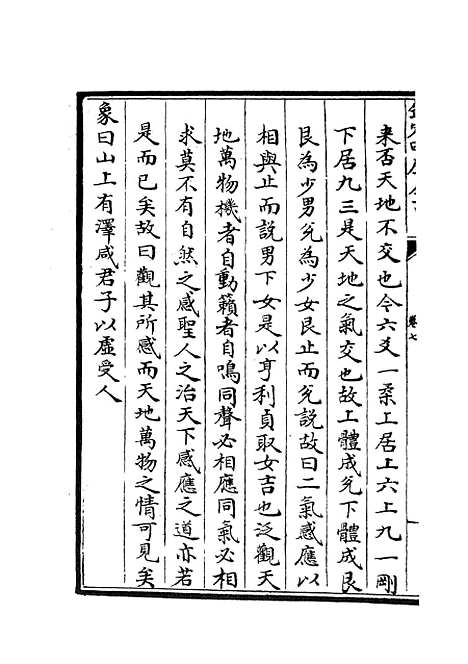 卷七
來否天地不交也今六爻一柔上居上六上九一剛
下居九三是天地之氣交也故上體成兌下體成艮
艮為少男兌為少女艮止而兌說故曰二氣感應以
相與止而說男下女是以亨利貞取女吉也泛觀天
地萬物機者自動籟者自鳴同聲必相應同氣必相
求莫不有自然之感聖人之治天下感應之道亦若
是而已矣故曰觀其所感而天地萬物之情可見矣
象曰山上有澤咸君子以虛受人